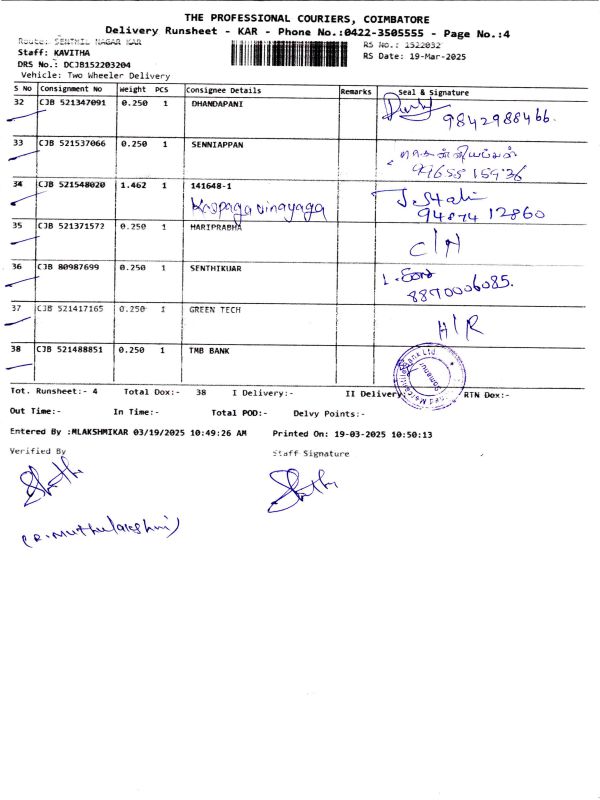 THE PROFESSIONAL COURIERS, COIMBATORE
Delivery Runsheet - KAR - Phone No.:0422-3505555 - Page No.:4
Route: SENTHIL NAGAR KAR
RS No.: 1522032
Staff: KAVITHA
RS Date: 19-Mar-2025
DRS No.: DCJB152203204
Vehicle: Two Wheeler Delivery
S No Consignment No Weight PCS Consignee Details Remarks Seal & Signature
32 CJB 521347091 0.250 1 DHANDAPANI
9842988466.
33 CJB 521537066 0.250 1 SENNIAPPAN
சென்னியப்பன்
9655815936
34 CJB 521548020 1.462 1 141648-1
Karpaga vinayaga
94874 12860
35 CJB 521371572 0.250 1 HARIPRABHA
C/N
36 CJB 80987699 0.250 1 SENTHIKUAR
8870006085.
37 CJB 521417165 0.250 1 GREEN TECH
H/R
38 CJB 521488851 0.250 1 TMB BANK
Mercantile Bank Ltd.
Somanur
Tot. Runsheet:- 4 Total Dox:- 38 I Delivery:- II Delivery:- RTN Dox:-
Out Time:- In Time:- Total POD:- Delvy Points:-
Entered By :MLAKSHMIKAR 03/19/2025 10:49:26 AM Printed On: 19-03-2025 10:50:13
Verified By Staff Signature
(R. Muthulakshmi)